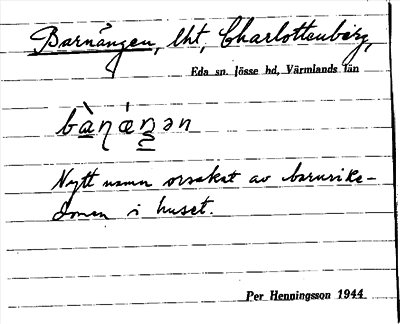 Barnängen, lht, Charlottenberg,
Eda sn. Jösse hd, Värmlands län
bàn̩ǽŋ̲ən
Nytt namn orsakat av barnrike-
domen i huset.
Per Henningsson 1944